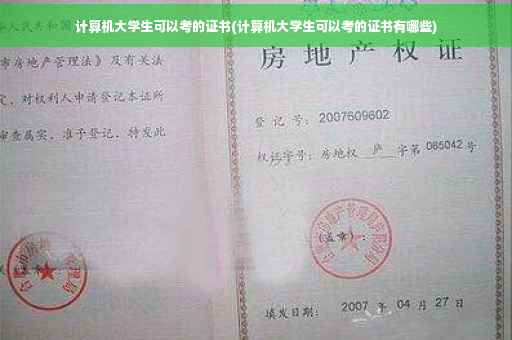 计算机大学生可以考的证书(计算机大学生可以考的证书有哪些)
华人民共和国
市房地产管理法》及有关法
定，对权利人申请登记本证所
审查属实，准予登记，特发此
房地产权证
登记号：2007609602
权证字号：房地权 庐 字第 085042 号
(盖章)：
填发日期： 2007 年 04 月 27 日